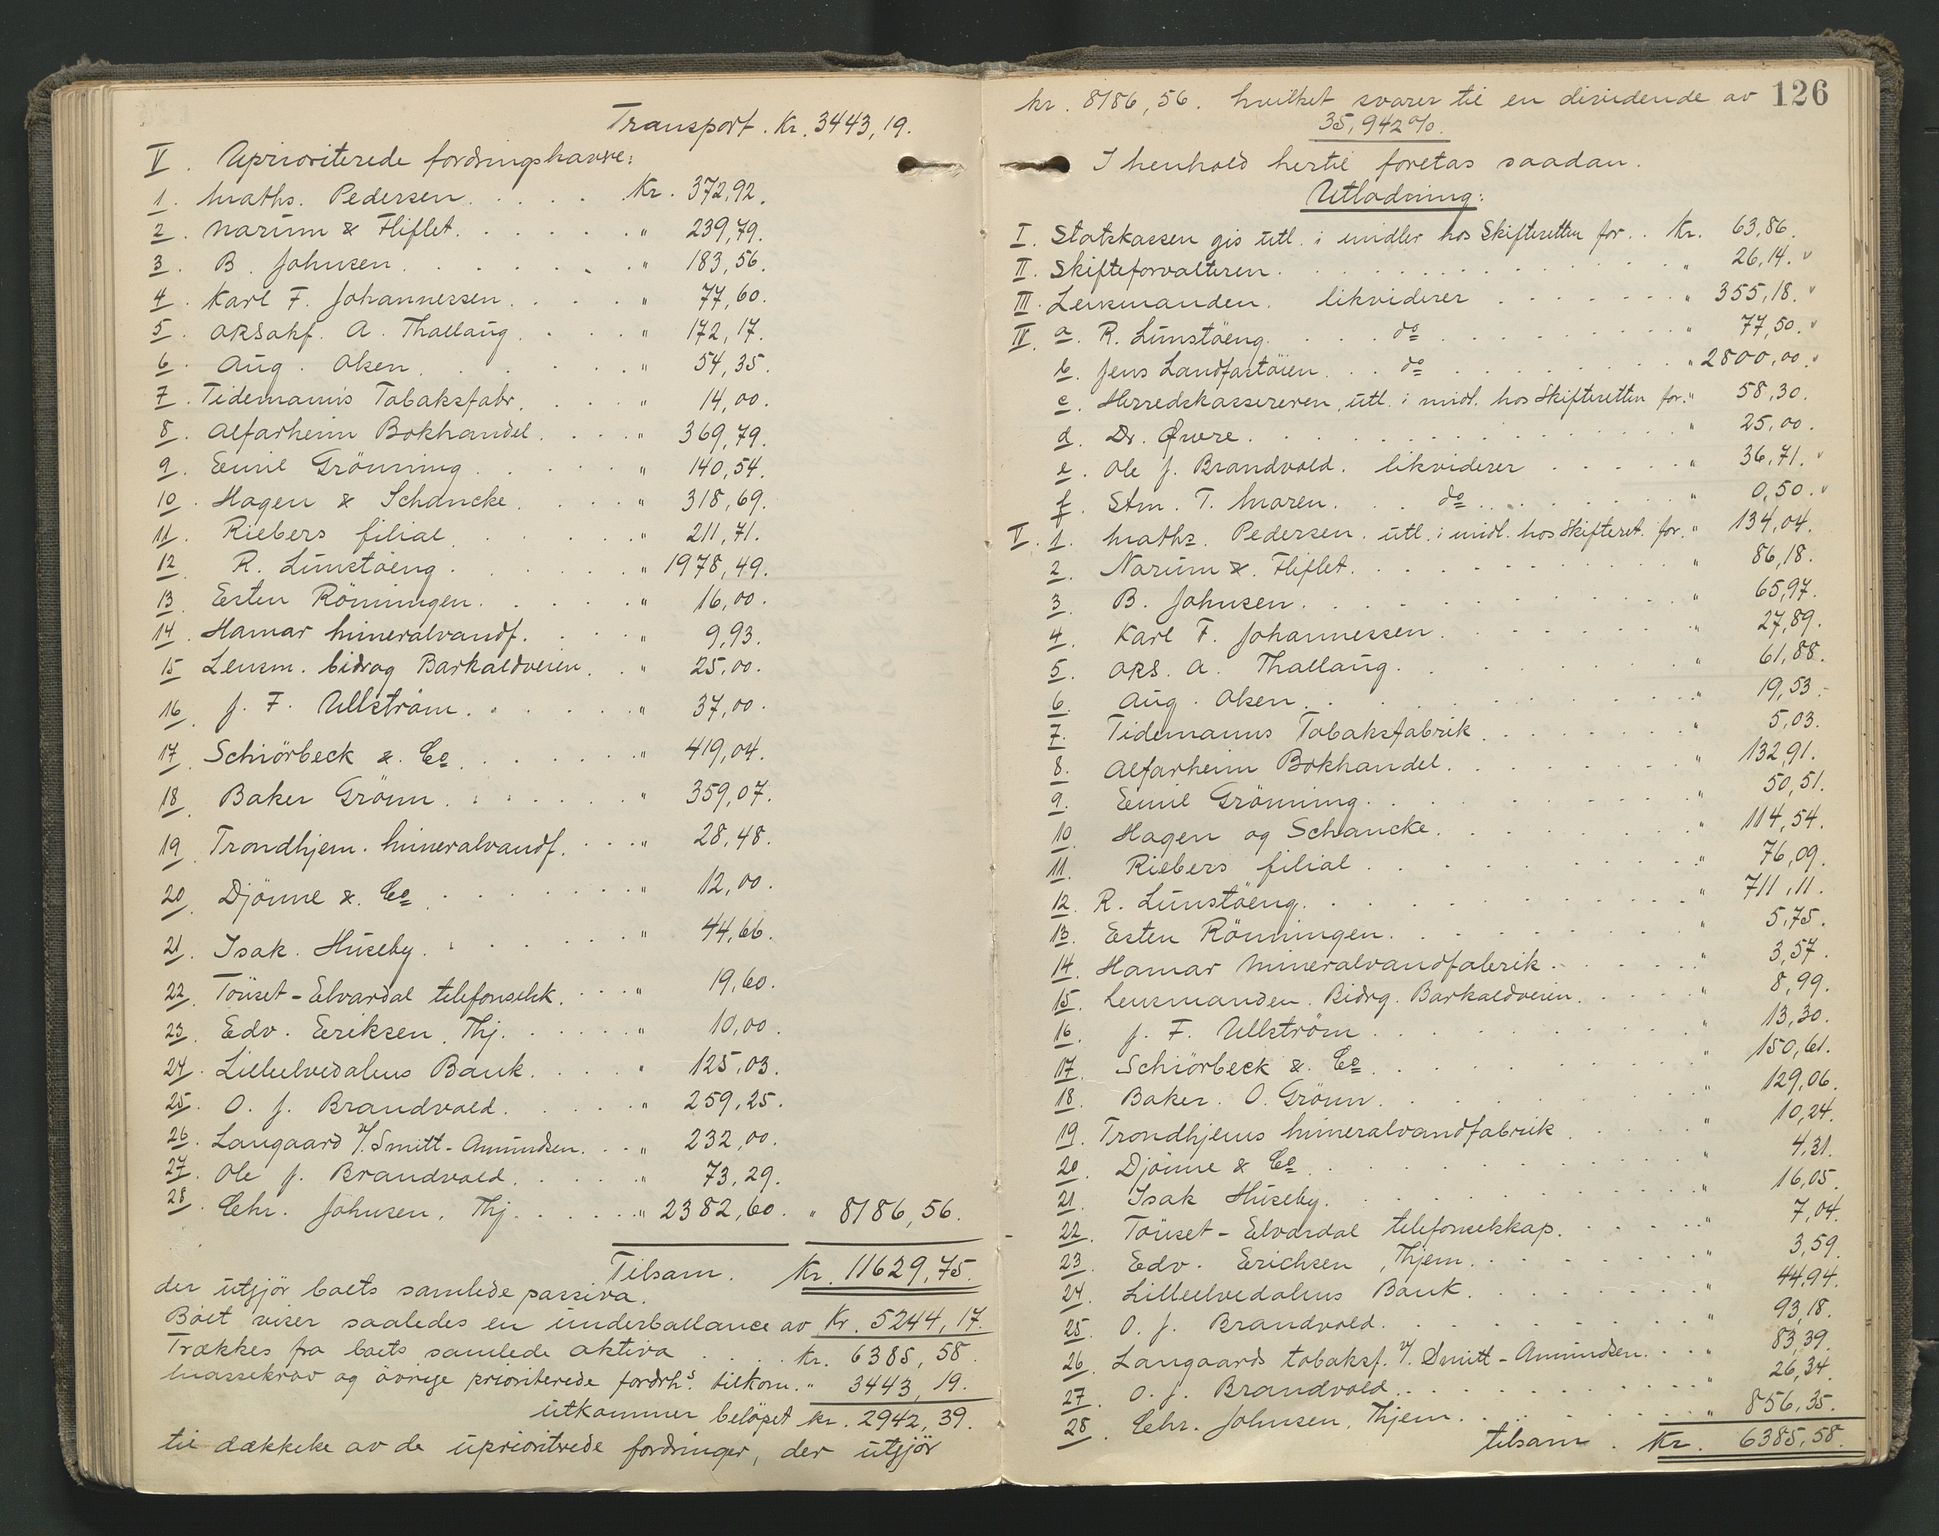 Transport. Kr. 3443,19.
V. Uprioriterede fordringshavere:
1. Maths. Pedersen. . . . . Kr. 372,92.
2. Narum & Fliflet. . . . . . " 239,79.
3. B. Johnsen. . . . . . . " 183,56.
4. Karl F. Johannessen. . . . . " 77,60.
5. Orsakf. A. Thallaug. . . . . " 172,17.
6. Aug. Olsen. . . . . . . " 54,35.
7. Tidemanns Tabaksfabr. . . . . " 14,00.
8. Alfarheim Bokhandel. . . . . " 369,79.
9. Emil Grönning. . . . . . " 140,54.
10. Hagen & Schancke. . . . . " 318,69.
11. Riebers filial. . . . . . " 211,71.
12. R. Lunstöeng. . . . . . " 1978,49.
13. Esten Rönningen. . . . . . " 16,00.
14. Hamar Mineralvandf. . . . . " 9,93.
15. Lensm. bidrag Barkaldveien. . . " 25,00.
16. J. F. Ullström. . . . . . " 37,00.
17. Schiörbeck & Co. . . . . . " 419,04.
18. Baker Grönn. . . . . . " 359,07.
19. Trondhjem. Mineralvandf. . . . " 28,48.
20. Djönne & Co. . . . . . . " 12,00.
21. Isak. Huseby. . . . . . . " 44,66.
22. Tönset-Elvardal telefonselsk. . . . " 19,60.
23. Edv. Eriksen, Thj. . . . . . " 10,00.
24. Lilleelvedalens Bank. . . . . " 125,03.
25. O. J. Brandvold. . . . . . " 259,25.
26. Langaard v/. Smitt-Amundsen. . . " 232,00.
27. Ole J. Brandvold. . . . . . " 73,29.
28. Chr. Johnsen, Thj. . . . . . " 2382,60. " 8186,56.
Tilsam. Kr. 11629,75.
der utgjör boets samlede passiva.
Boet viser saaledes en underballance av Kr. 5244,17.
Trækkes fra boets samlede aktiva . . . . Kr. 6385,58.
massekrav og övrige prioriterede fordrh.s tilkom. " 3443,19.
utkommer belöpet kr. 2942,39.
til dækkelse av de uprioritrede fordringer, der utgjör
126
kr. 8186,56. hvilket svarer til en dividende av
35,942%.
I henhold hertil foretas saadan.
Utlodning:
I. Statskassen gis utl. i midler hos Skifteretten for. . Kr. 63,86.
II. Skifteforvalteren. . . . . . . . . " 26,14. v
III. Lensmanden. likviderer . . . . . . " 355,18. v
IV a. R. Lunstöeng. . . . do . . . . . . " 77,50. v
b. Jens Landfastöien. . . do . . . . . . " 2800,00. v
c. Herredskassereren, utl. i midl. hos Skifteretten for. " 58,30.
d. Dr. Øwre. . . . . . . . . . " 25,00.
e. Ole J. Brandvold. likviderer . . . . . " 36,71. v
f. Stm. T. Moren. . . . do . . . . . . " 0,50. v
V. 1. Maths. Pedersen. utl. i midl. hos Skifteret. for. " 134,04.
2. Narum & Fliflet. . . . . . . . . " 86,18.
3. B. Johnsen. . . . . . . . . . " 65,97.
4. Karl F. Johannessen. . . . . . . . " 27,89.
5. ors. A. Thallaug. . . . . . . . . " 61,88.
6. Aug. Olsen. . . . . . . . . . " 19,53.
7. Tidemanns Tabaksfabrik . . . . . . . " 5,03.
8. Alfarheim Bokhandel. . . . . . . . " 132,91.
9. Emil Grönning. . . . . . . . . " 50,51.
10. Hagen og Schancke. . . . . . . . " 114,54.
11. Riebers filial. . . . . . . . . " 76,09.
12. R. Lunstöeng. . . . . . . . . . " 711,11.
13. Esten Rönningen. . . . . . . . . " 5,75.
14. Hamar Mineralvandfabrik. . . . . . " 3,57.
15. Lensmanden. Bidrg. Barkaldveien. . . . . " 8,99.
16. J. F. Ullström . . . . . . . . . " 13,30.
17. Schiörbeck & Co. . . . . . . . . " 150,61.
18. Baker. O. Grönn. . . . . . . . . " 129,06.
19. Trondhjems Mineralvandfabrik . . . . . " 10,24.
20. Djönne & Co. . . . . . . . . . " 4,31.
21. Isak Huseby. . . . . . . . . . " 16,05.
22. Tönset-Elvardal telefonselskap. . . . . " 7,04.
23. Edv. Erichsen, Thjem. . . . . . . . " 3,59.
24. Lilleelvedalens Bank. . . . . . . . " 44,94.
25. O. J. Brandvold. . . . . . . . . " 93,18.
26. Langaards tobaksf. v/. Smitt-Amundsen. . . . " 83,39.
27. O. J. Brandvold. . . . . . . . . " 26,34.
28. Chr. Johnsen, Thjem. . . . . . . . " 856,35.
tilsam. Kr. 6385,58.